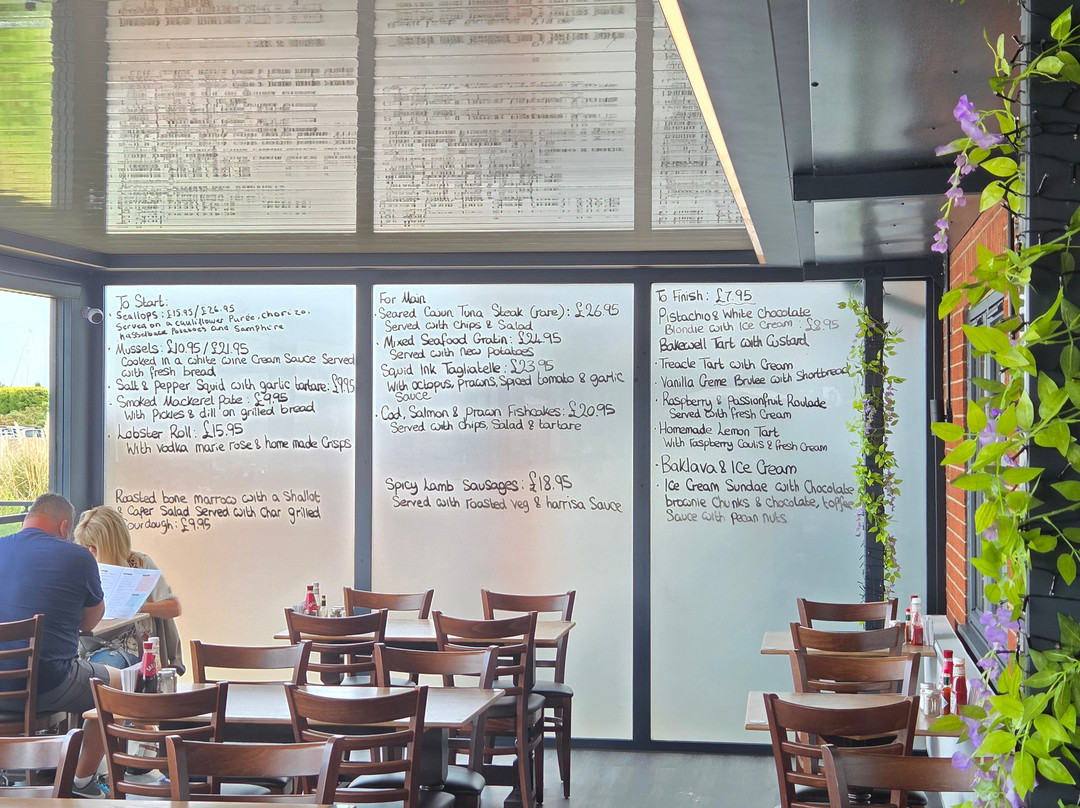 To Start:
· Scallops: £15.95/£26.95
Served on a Cauliflower Purée, chorizo,
hasselback Potatoes and Samphire
· Mussels: £10.95/£21.95
Cooked in a white wine Cream Sauce Served
with fresh bread
· Salt & Pepper Squid with garlic tartare: £9.95
· Smoked Mackerel Pate: £9.95
With Pickles & dill on grilled bread
· Lobster Roll: £15.95
With vodka marie rose & home made Crisps
Roasted bone marrow with a Shallot
& Caper Salad Served with Char grilled
Sourdough: £9.95
For Main
· Seared Cajun Tuna Steak (rare): £26.95
Served with Chips & Salad
· Mixed Seafood Gratin: £24.95
Served with new potatoes
Squid Ink Tagliatelle: £23.95
With octopus, prawns, Spiced tomato & garlic
Sauce
· Cod, Salmon & prawn Fishcakes: £20.95
Served with chips, Salad & tartare
Spicy Lamb Sausages: £18.95
Served with roasted veg & harrisa Sauce
To Finish: £7.95
Pistachio & White Chocolate
Blondie with Ice Cream: £8.95
Bakewell Tart with Custard
· Treacle Tart with Cream
· Vanilla Creme Brulee with Shortbread
· Raspberry & Passionfruit Roulade
Served with fresh Cream
· Homemade Lemon Tart
With Raspberry Coulis & fresh Cream
· Baklava & Ice Cream
· Ice Cream Sundae with Chocolate
brownie Chunks & Chocolate, toffee
Sauce with pecan nuts